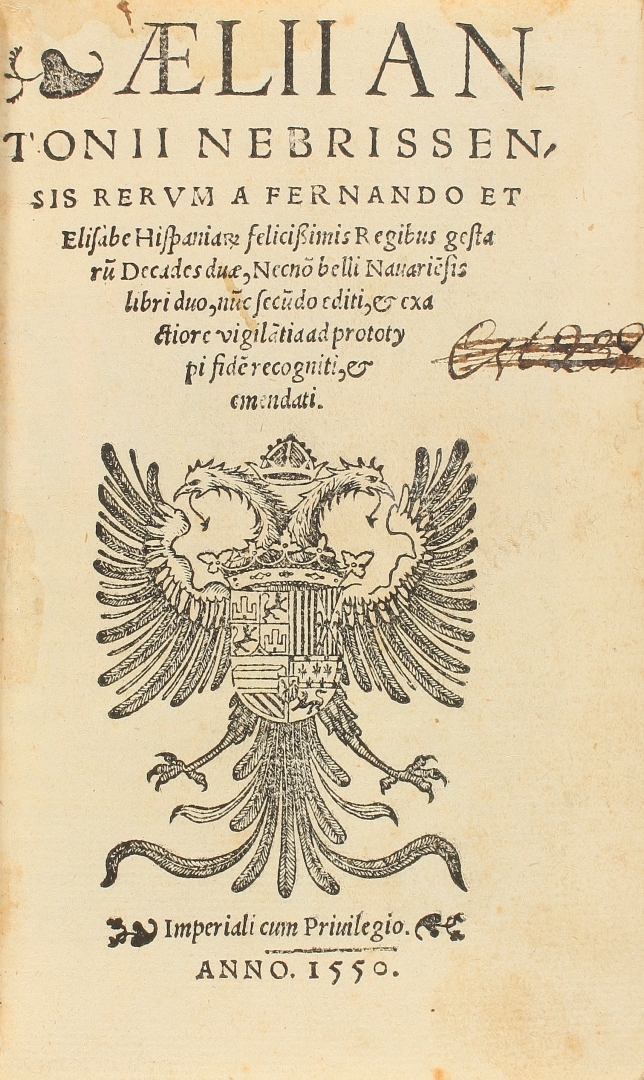 ÆLII AN-
TONII NEBRISSEN,
SIS RERVM A FERNANDO ET
Elisabe Hispaniaꝝ felicißimis Regibus gesta
rū Decades duæ, Necnō belli Nauariēsis
libri duo, nūc secūdo editi, & exa
ctiore vigilātia ad prototy
pi fidē recogniti, &
emendati.
Imperiali cum Priuilegio.
ANNO. 1550.